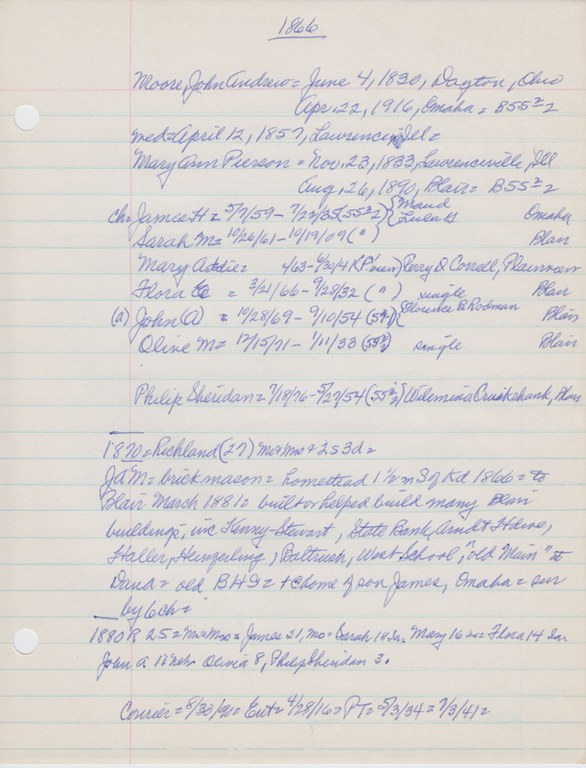 1866
Moore, John Andrew = June 4, 1830, Dayton, Ohio
Apr. 22, 1916, Omaha = B55½ 2
med = April 12, 1857, Lawrence, Ill =
Mary Ann Pierson = Nov. 23, 1833, Lawrenceville, Ill
Aug. 26, 1890, Blair = B55½ 2
ch = James H = 5/7/59 - 7/23/35 (55½ 2) { Maud
Lula G Omaha
Sarah M = 10/26/61 - 10/19/09 ( " ) Blair
Mary Addie = 4/63 - 6/30/41 Perry E Correll, Plainview
Flora = 3/21/66 - 9/28/32 ( " ) single Blair
(a) John (A) = 10/28/69 - 9/10/54 { Florence B Rodman Blair
Olive M = 12/15/71 - 1/11/33 (55½) single Blair
Philip Sheridan = 7/18/76 - 5/27/54 (55½ 2) Wilemina Cruikshank, Blair
1870 = Richland (27) Mr + Mrs + 2s 3d =
JAM = brickmason = homestead 1½ m S of Kd 1866 = to
Blair March 1881 = built or helped build many Blair
buildings, inc Kenny-Stewart, State Bank, Arndt Hdwe,
Haller, , West School, "old Main" to
Dana = old BHS = + c home of son James, Omaha = sur
by 6 ch =
1880 R 25 = Mr + Mrs = James 21, Mo = Sarah 18 In. Mary 16 = Flora 14 In
John A 12 Neb Olivia 8, Philip Sheridan 3.
Courier = 8/30/90 = Ent = 4/28/16 = PT = 5/3/34 = 7/3/41 =